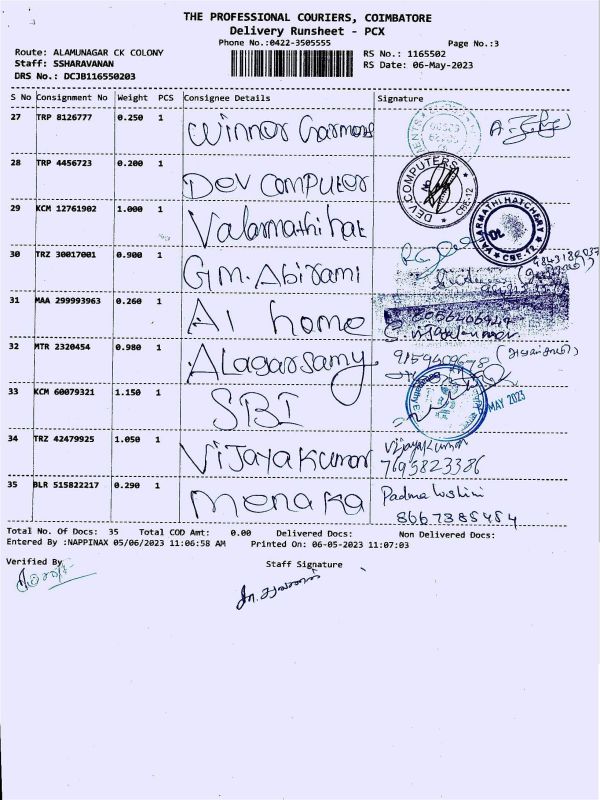 THE PROFESSIONAL COURIERS, COIMBATORE
Delivery Runsheet - PCX
Phone No.:0422-3505555 Page No.:3
Route: ALAMUNAGAR CK COLONY RS No.: 1165502
Staff: SSHARAVANAN RS Date: 06-May-2023
DRS No.: DCJB116550203
S No Consignment No Weight PCS Consignee Details Signature
27 TRP 8126777 0.250 1 Winner Garments
28 TRP 4456723 0.200 1 Dev Computer DEV COMPUTERS CBE-12
29 KCM 12761902 1.000 1 Valarmathi hat VALARMATHI HATCHERY CBE-12
30 TRZ 30017001 0.900 1 G.M. Abirami
31 MAA 299993963 0.260 1 AI home
32 MTR 2320454 0.980 1 Alagarsamy
33 KCM 60079321 1.150 1 SBI MAY 2023
34 TRZ 42479925 1.050 1 Vijayakumar Vijayakumar
7695823386
35 BLR 515822217 0.290 1 Menaka Padma
8667385454
Total No. Of Docs: 35 Total COD Amt: 0.00 Delivered Docs: Non Delivered Docs:
Entered By :NAPPINAX 05/06/2023 11:06:58 AM Printed On: 06-05-2023 11:07:03
Verified By Staff Signature